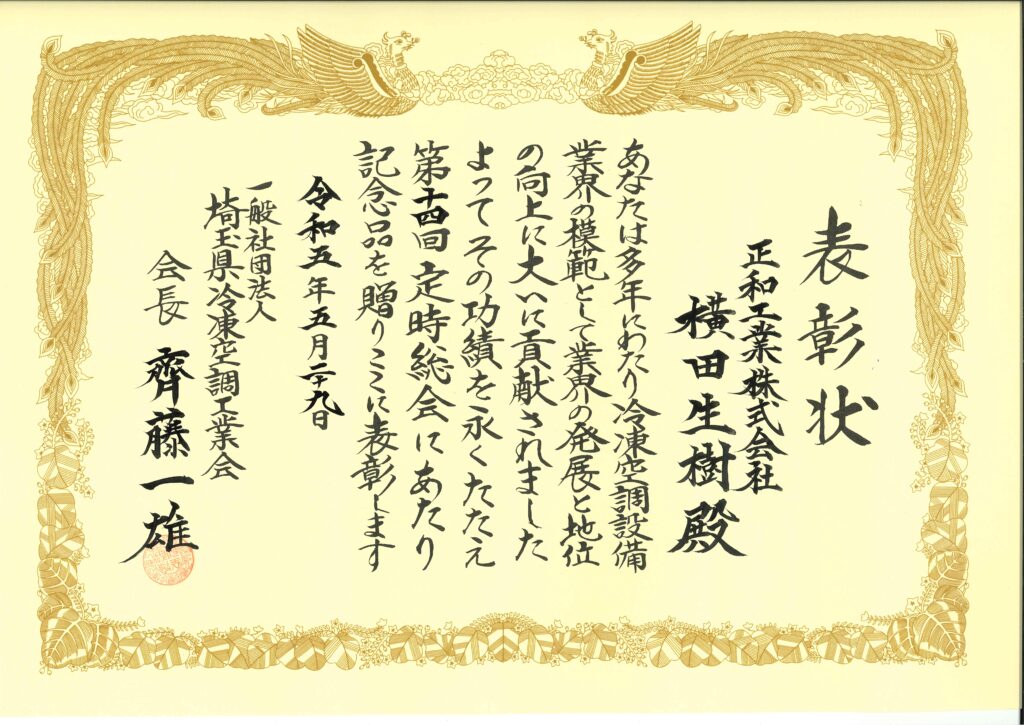 表彰状
正和工業株式会社
横田生樹殿
あなたは多年にわたり冷凍空調設備
業界の模範として業界の発展と地位
の向上に大いに貢献されました
よってその功績を永くたたえ
第十四回定時総会にあたり
記念品を贈りここに表彰します
令和五年五月二十九日
一般社団法人
埼玉県冷凍空調工業会
会長 齊藤一雄